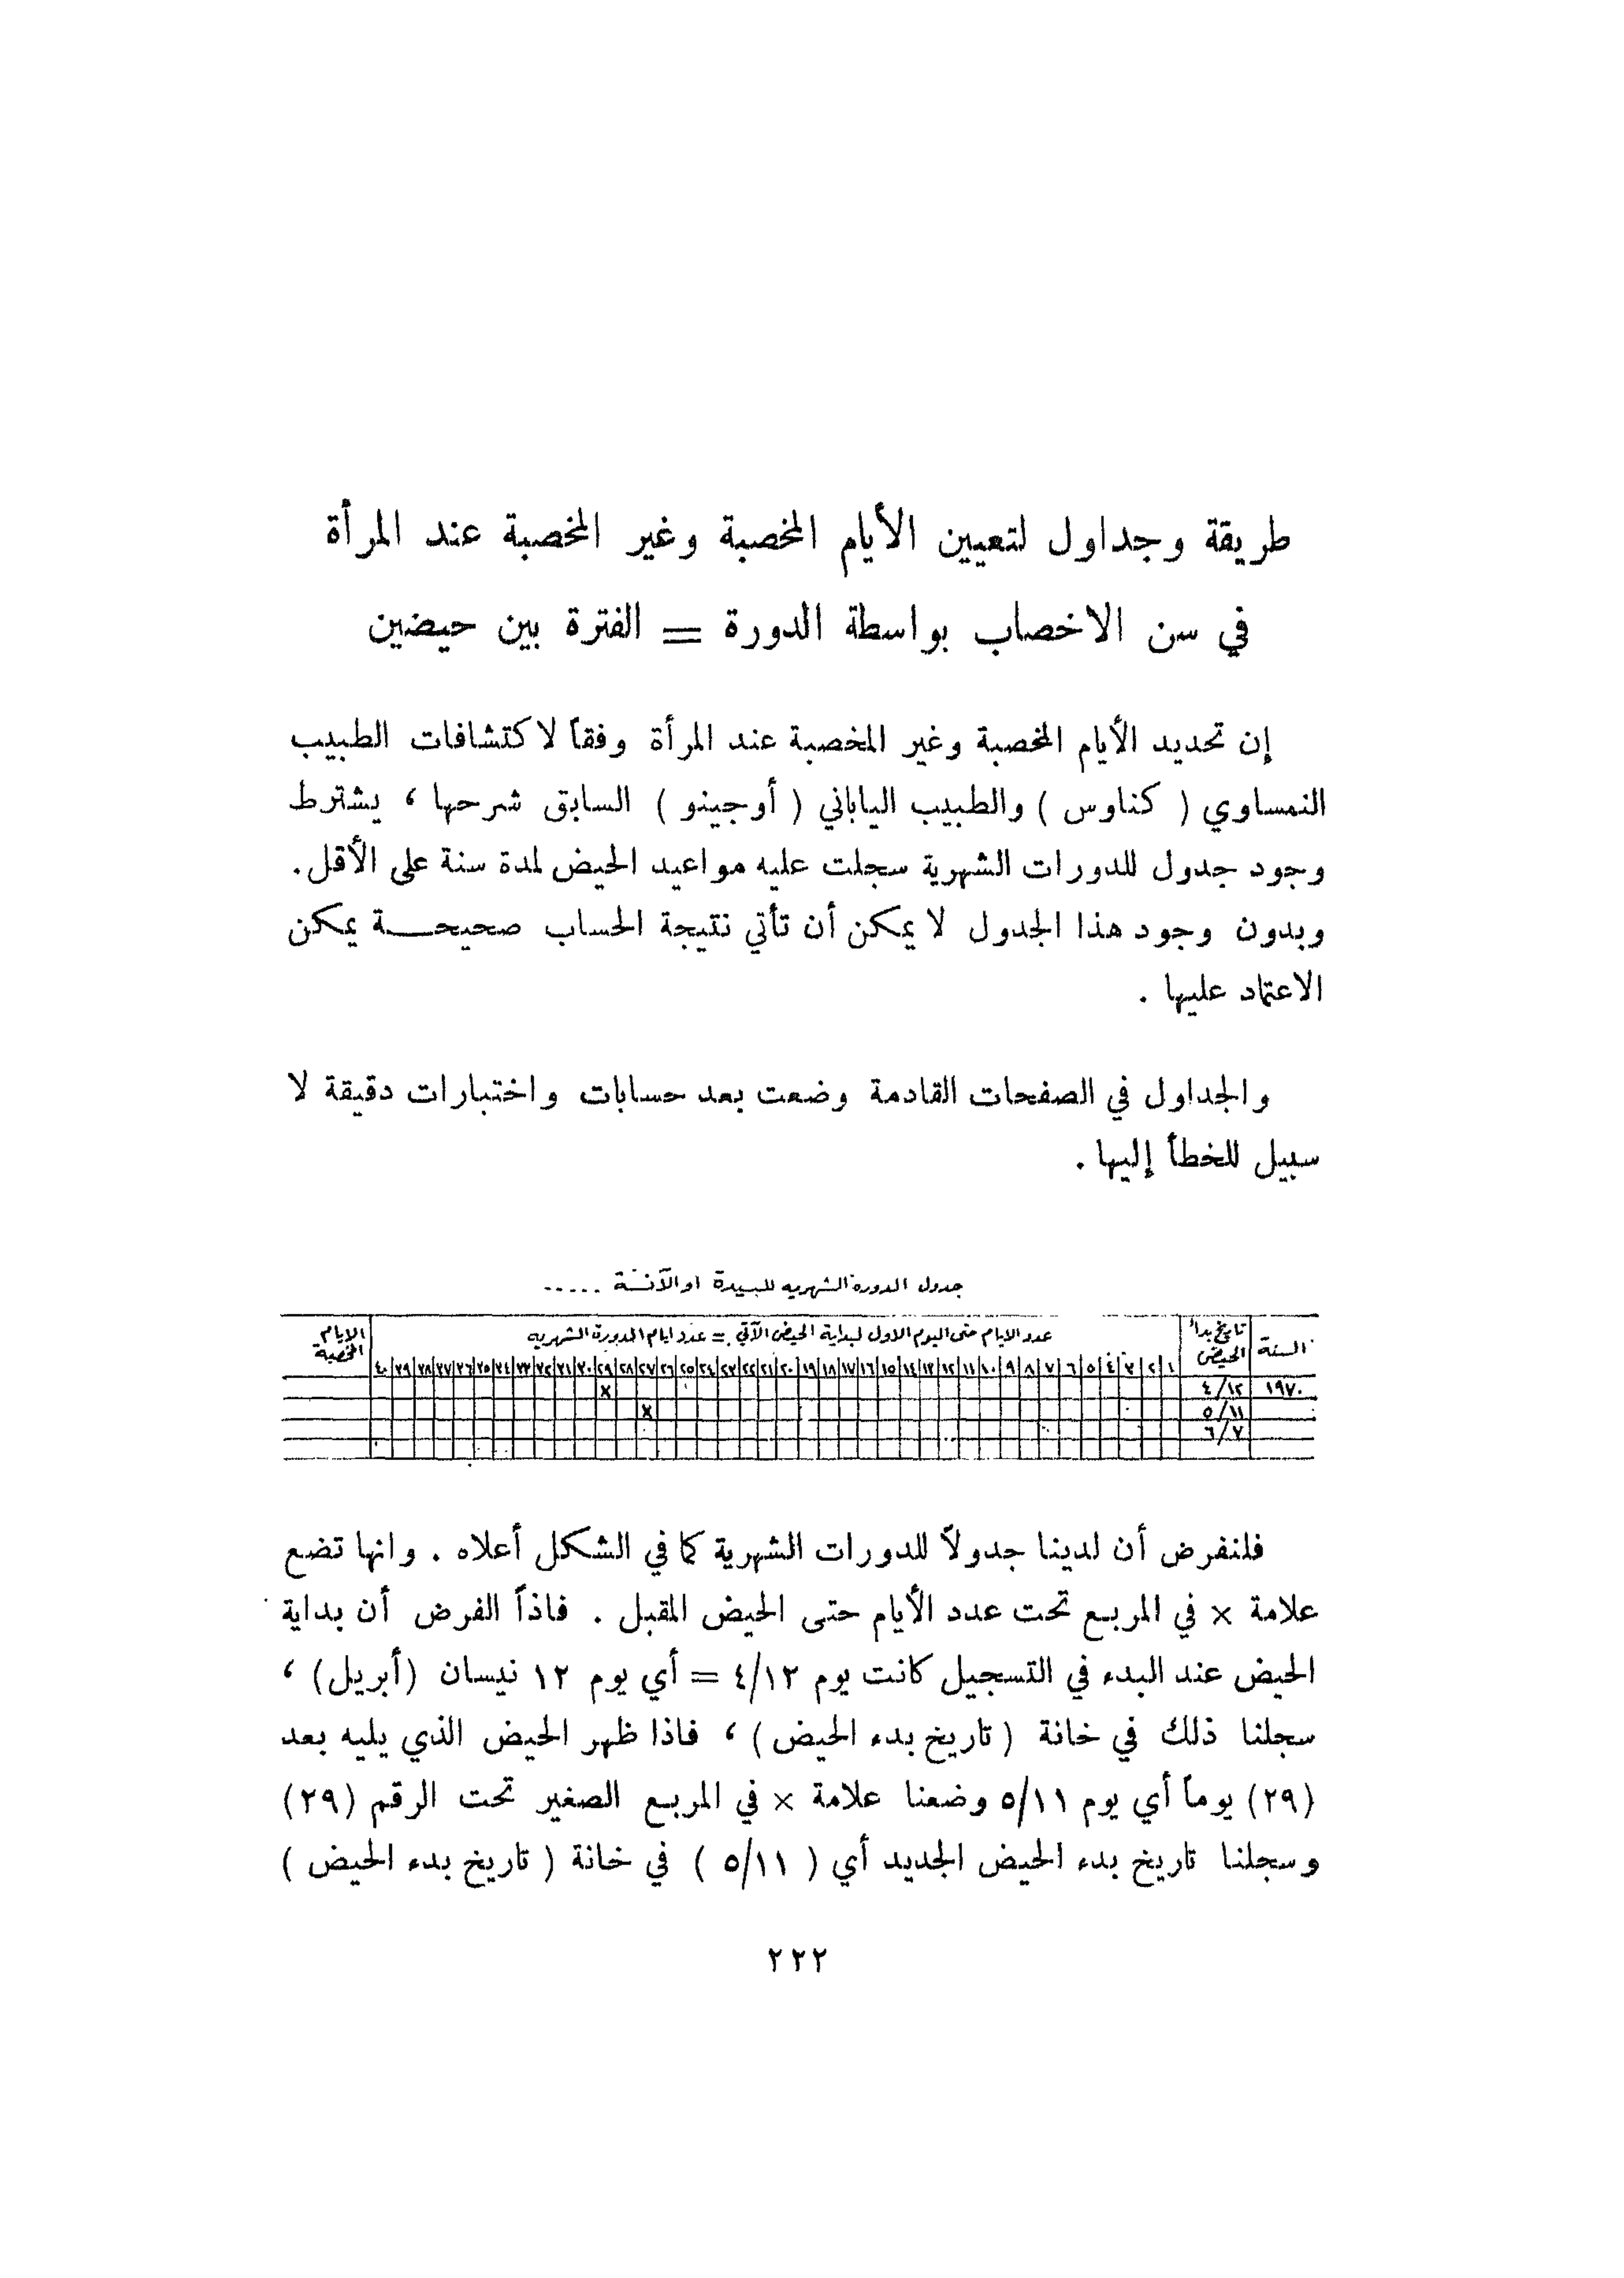 طريقة وجداول لتعيين الأيام المخصبة وغير المخصبة عند المرأة
في سن الاخصاب بواسطة الدورة = الفترة بين حيضين
إن تحديد الأيام المخصبة وغير المخصبة عند المرأة وفقاً لاكتشافات الطبيب
النمساوي ( كناوس ) والطبيب الياباني ( أوجينو ) السابق شرحها ، يشترط
وجود جدول للدورات الشهرية سجلت عليه مواعيد الحيض لمدة سنة على الأقل .
وبدون وجود هذا الجدول لا يمكن أن تأتي نتيجة الحساب صحيحـــة يمكن
الاعتماد عليها .
والجداول في الصفحات القادمة وضعت بعد حسابات واختبارات دقيقة لا
سبيل للخطأ إليها .
جدول الدورة الشهريه للسيدة او الآنسة .....
السنة تاريخ بدأ الحيض عدد الايام حتى اليوم الاول لبداية الحيض الآتي = عدد ايام الدورة الشهريه الايام المخصبة
١ ٢ ٣ ٤ ٥ ٦ ٧ ٨ ٩ ١٠ ١١ ١٢ ١٣ ١٤ ١٥ ١٦ ١٧ ١٨ ١٩ ٢٠ ٢١ ٢٢ ٢٣ ٢٤ ٢٥ ٢٦ ٢٧ ٢٨ ٢٩ ٣٠ ٣١ ٣٢ ٣٣ ٣٤ ٣٥ ٣٦ ٣٧ ٣٨ ٣٩ ٤٠
١٩٧٠ ٤/١٢ x
٥/١١ x
٦/٧
فلنفرض أن لدينا جدولاً للدورات الشهرية كما في الشكل أعلاه . وانها تضع
علامة × في المربع تحت عدد الأيام حتى الحيض المقبل . فاذاً الفرض أن بداية
الحيض عند البدء في التسجيل كانت يوم ٤/١٢ = أي يوم ١٢ نيسان (أبريل) ،
سجلنا ذلك في خانة ( تاريخ بدء الحيض ) ، فاذا ظهر الحيض الذي يليه بعد
(٢٩) يوماً أي يوم ٥/١١ وضعنا علامة × في المربع الصغير تحت الرقم (٢٩)
وسجلنا تاريخ بدء الحيض الجديد أي ( ٥/١١ ) في خانة ( تاريخ بدء الحيض )
٢٢٢